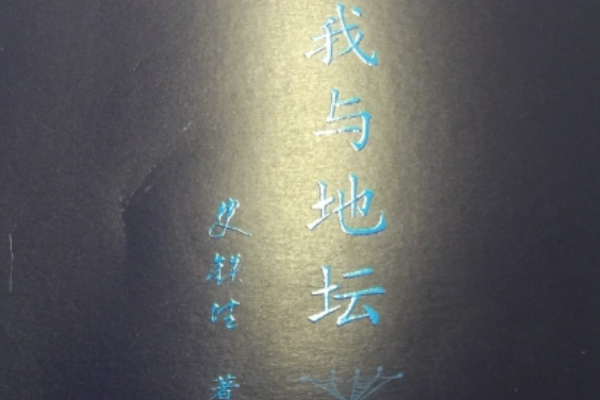 我与地坛
史铁生 著